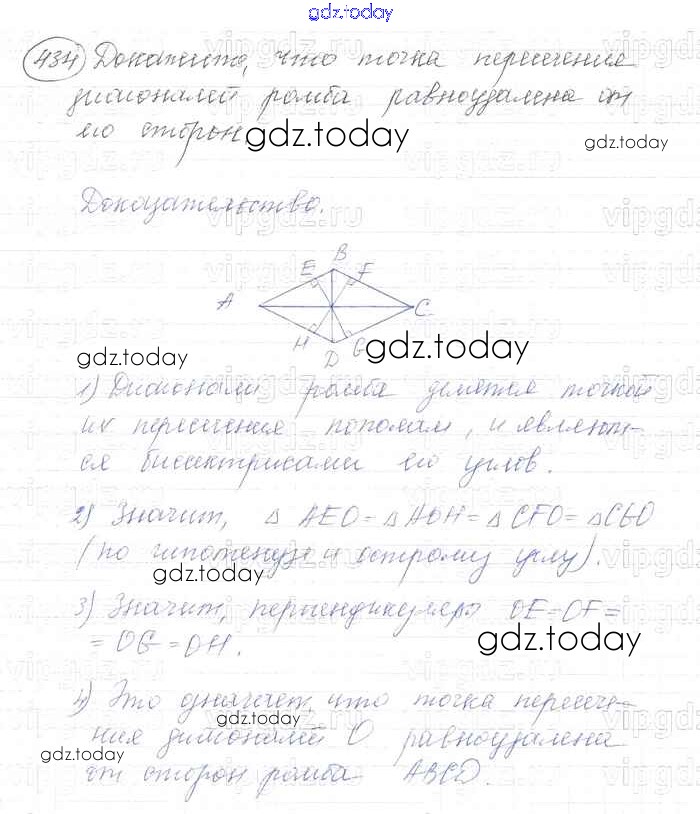 gdz.today
434 Докажите, что точка пересечение
диагоналей ромба равноудалена от
его сторон.
gdz.today
gdz.today
Доказательство.
B
E F
A C
H G
D
gdz.today
gdz.today
1) Диагонали ромба делятся точкой
их пересечения пополам, и являют-
ся биссектрисами его углов.
2) Значит, Δ AEO = Δ AOH = Δ CFO = Δ CGO
(по гипотенузе и острому углу).
gdz.today
3) Значит, перпендикуляры OE = OF =
= OG = OH.
gdz.today
4) Это означает, что точка пересече-
gdz.today
ния диагоналей O равноудалена
gdz.today
от сторон ромба ABCD.